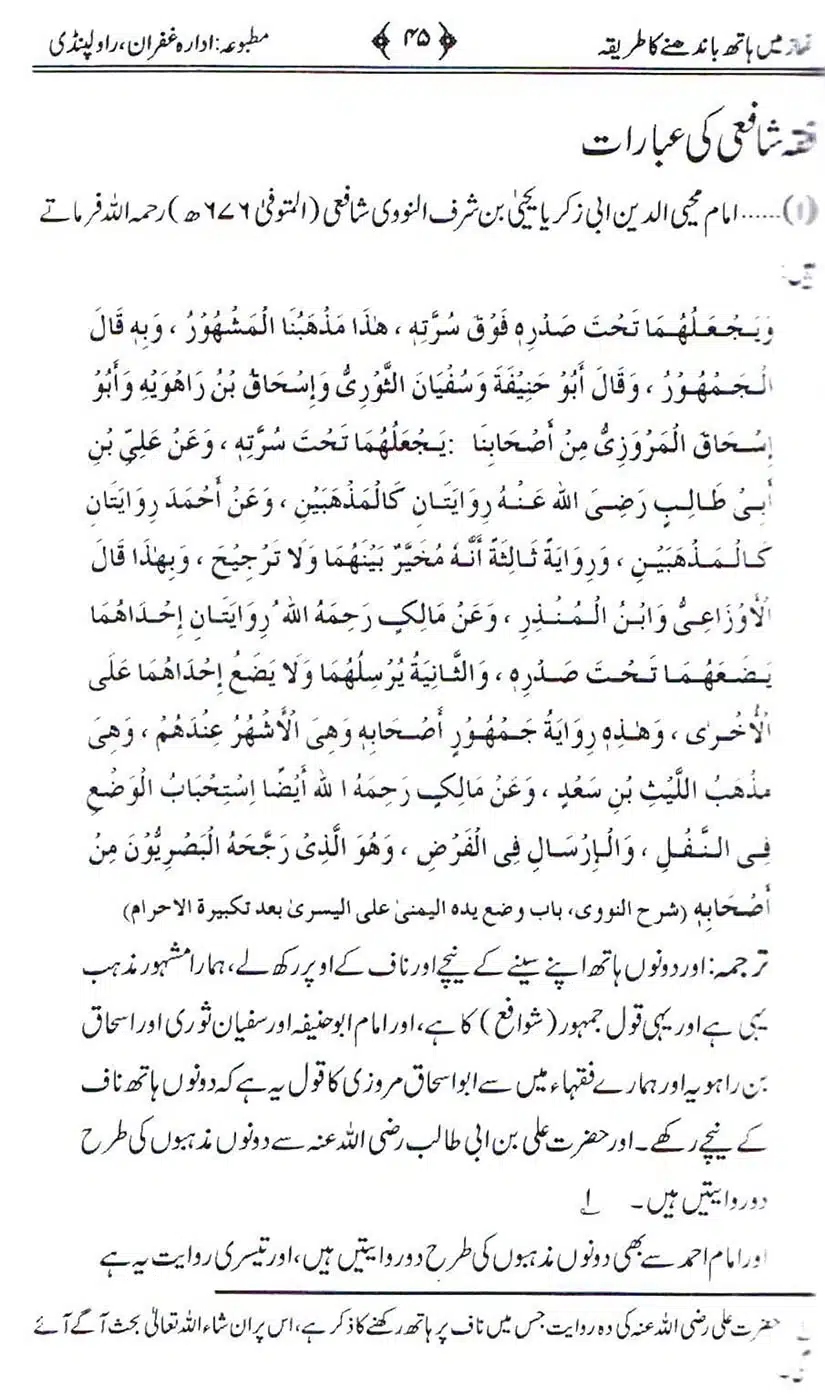 نماز میں ہاتھ باندھنے کا طریقہ ﴿ ۴۵ ﴾ مطبوعہ: ادارہ غفران، راولپنڈی
فقہ شافعی کی عبارات
(۱)...... امام محیی الدین ابی زکریا یحییٰ بن شرف النووی شافعی (المتوفیٰ ۶۷۶ھ) رحمہ اللہ فرماتے
ہیں:
وَيَجْعَلُهُمَا تَحْتَ صَدْرِهٖ فَوْقَ سُرَّتِهٖ ، هٰذَا مَذْهَبُنَا الْمَشْهُوْرُ ، وَبِهٖ قَالَ
الْجَمْهُوْرُ ، وَقَالَ أَبُوْ حَنِيْفَةَ وَسُفْيَانَ الثَّوْرِىُّ وَإِسْحَاقُ بْنُ رَاهْوَيْهِ وَأَبُوْ
إِسْحَاقَ الْمَرْوَزِىُّ مِنْ أَصْحَابِنَا :يَجْعَلُهُمَا تَحْتَ سُرَّتِهٖ ، وَعَنْ عَلِىِّ بْنِ
أَبِىْ طَالِبٍ رَضِىَ اللہ عَنْهُ رِوَايَتَانِ كَالْمَذْهَبَيْنِ ، وَعَنْ أَحْمَدَ رِوَايَتَانِ
كَالْمَذْهَبَيْنِ ، وَرِوَايَةٌ ثَالِثَةٌ أَنَّهُ مُخَيَّرٌ بَيْنَهُمَا وَلَا تَرْجِيْحَ ، وَبِهٰذَا قَالَ
الْأَوْزَاعِىُّ وَابْنُ الْمُنْذِرِ ، وَعَنْ مَالِكٍ رَحِمَهُ اللہُ رِوَايَتَانِ إِحْدَاهُمَا
يَضَعَهُمَا تَحْتَ صَدْرِهٖ ، وَالثَّانِيَةُ يُرْسِلُهُمَا وَلَا يَضَعُ إِحْدَاهُمَا عَلَى
الْأُخْرٰى ، وَهٰذِهٖ رِوَايَةُ جَمْهُوْرِ أَصْحَابِهٖ وَهِىَ الْأَشْهُرُ عِنْدَهُمْ ، وَهِىَ
مَذْهَبُ اللَّيْثِ بْنِ سَعْدٍ ، وَعَنْ مَالِكٍ رَحِمَهُ ا للہ أَيْضًا اِسْتِحْبَابُ الْوَضْعِ
فِى النَّفْلِ ، وَالْإِرْسَالِ فِى الْفَرْضِ ، وَهُوَ الَّذِىْ رَجَّحَهُ الْبَصْرِيُّوْنَ مِنْ
أَصْحَابِهٖ (شرح النووی، باب وضع يده اليمنیٰ علی اليسریٰ بعد تكبيرة الاحرام)
ترجمہ: اور دونوں ہاتھ اپنے سینے کے نیچے اور ناف کے اوپر رکھ لے، ہمارا مشہور مذہب
یہی ہے اور یہی قول جمہور (شوافع) کا ہے، اور امام ابوحنیفہ اور سفیان ثوری اور اسحاق
بن راہویہ اور ہمارے فقہاء میں سے ابواسحاق مروزی کا قول یہ ہے کہ دونوں ہاتھ ناف
کے نیچے رکھے۔ اور حضرت علی بن ابی طالب رضی اللہ عنہ سے دونوں مذہبوں کی طرح
دو روایتیں ہیں۔ ۱
اور امام احمد سے بھی دونوں مذہبوں کی طرح دو روایتیں ہیں، اور تیسری روایت یہ ہے
۱ حضرت علی رضی اللہ عنہ کی وہ روایت جس میں ناف پر ہاتھ رکھنے کا ذکر ہے، اس پر ان شاء اللہ تعالیٰ بحث آگے آئے
گی۔